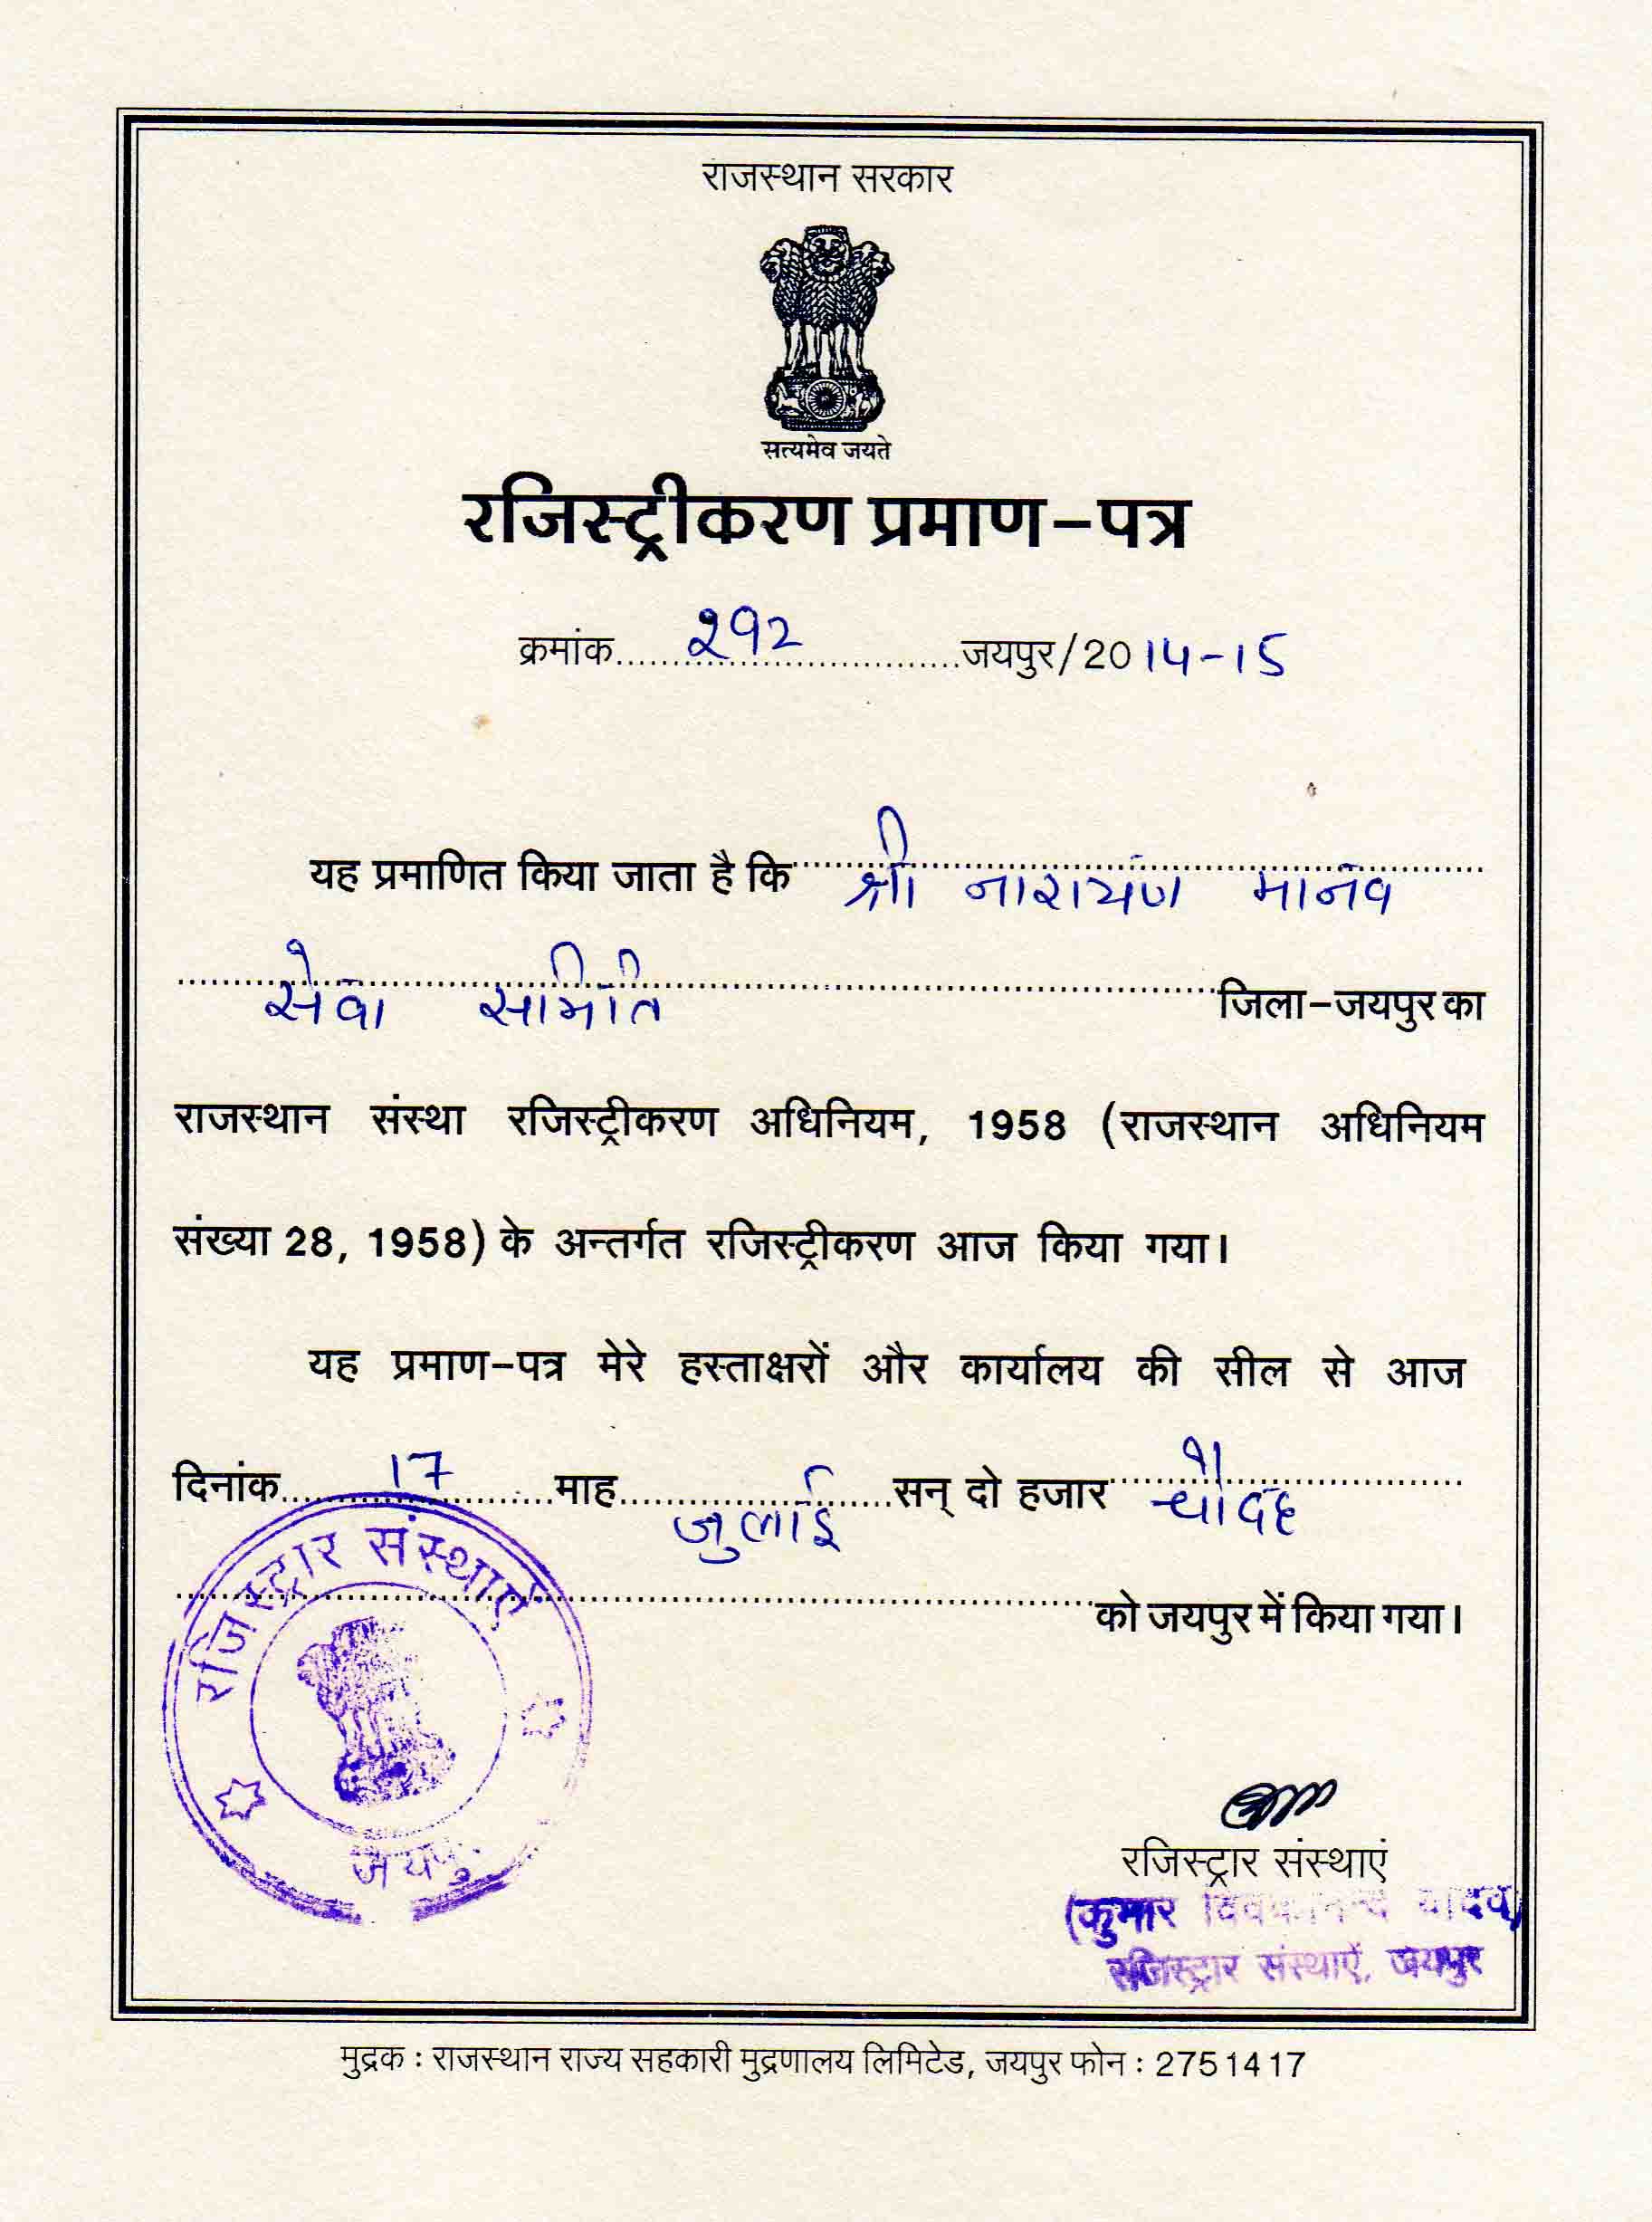 राजस्थान सरकार
सत्यमेव जयते
रजिस्ट्रीकरण प्रमाण-पत्र
क्रमांक.......292.......जयपुर/2014-15
यह प्रमाणित किया जाता है कि श्री नारायण मानव
सेवा समिति जिला-जयपुर का
राजस्थान संस्था रजिस्ट्रीकरण अधिनियम, 1958 (राजस्थान अधिनियम
संख्या 28, 1958) के अन्तर्गत रजिस्ट्रीकरण आज किया गया।
यह प्रमाण-पत्र मेरे हस्ताक्षरों और कार्यालय की सील से आज
दिनांक.......17.......माह.......जुलाई.......सन् दो हजार चौदह
को जयपुर में किया गया।
रजिस्ट्रार संस्थाऐं
जयपुर
रजिस्ट्रार संस्थाएं
(कुमार विवेकानन्द यादव)
रजिस्ट्रार संस्थाऐं, जयपुर
मुद्रक : राजस्थान राज्य सहकारी मुद्रणालय लिमिटेड, जयपुर फोन : 2751417